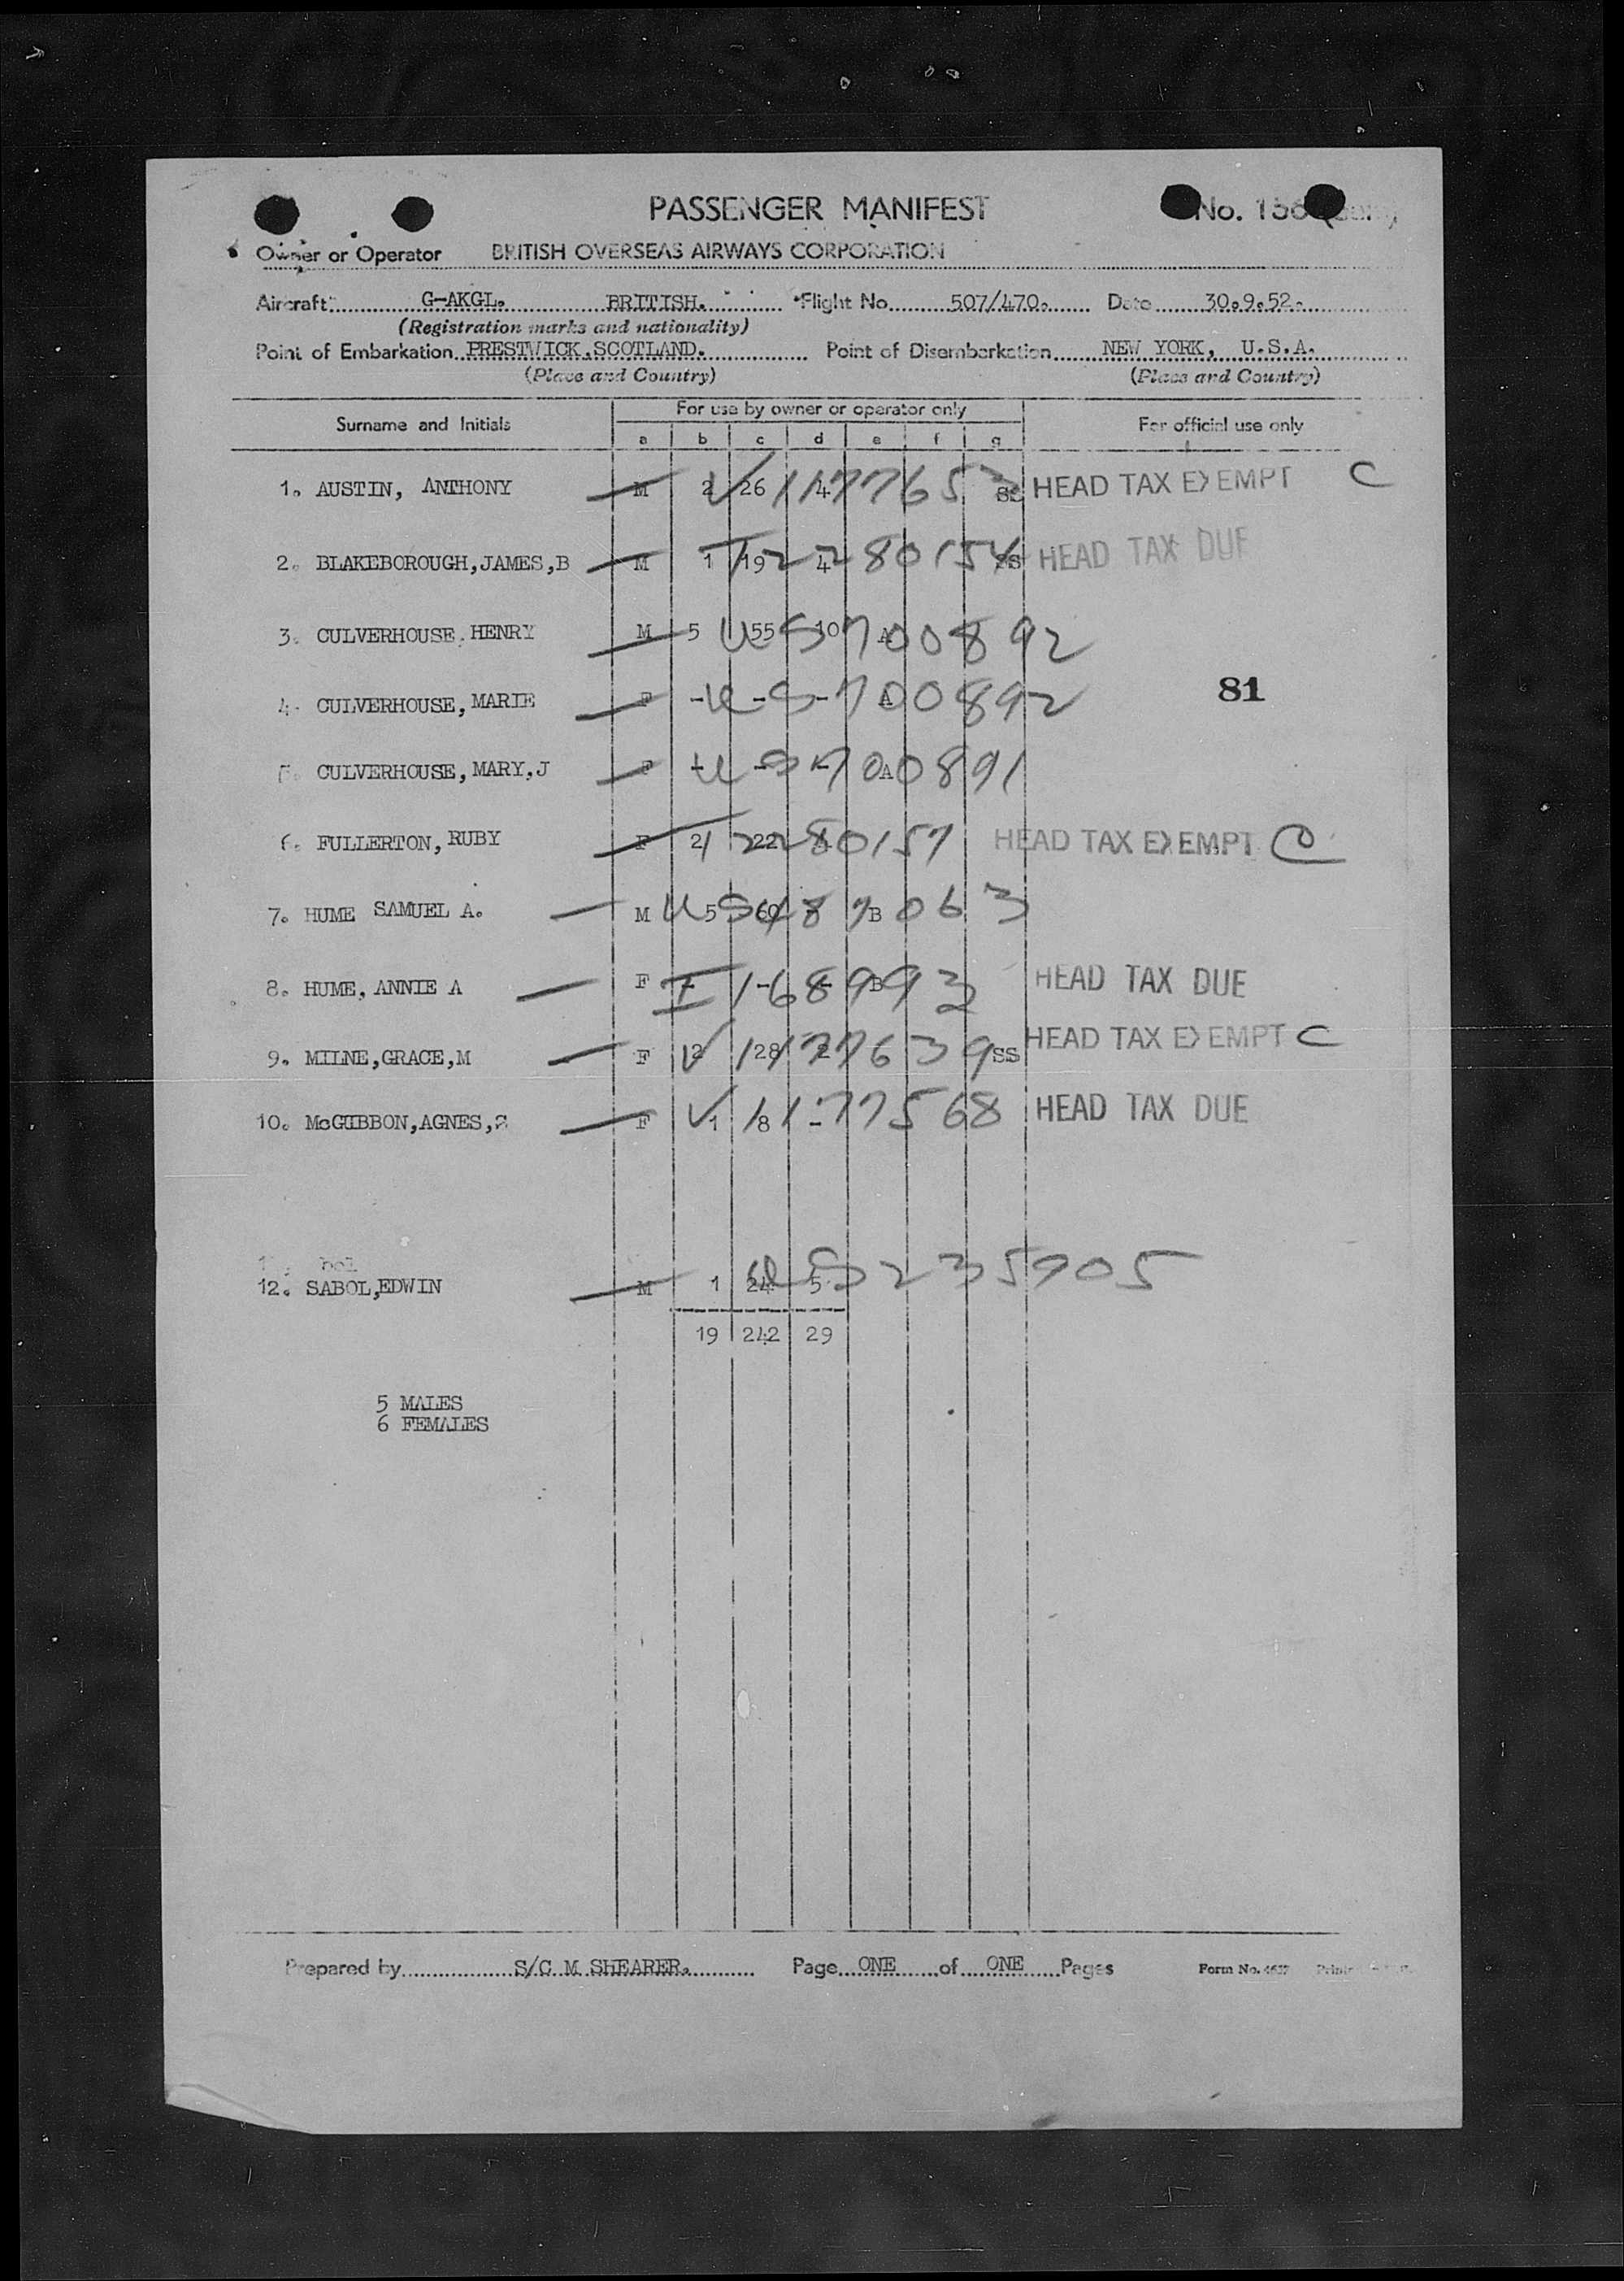 PASSENGER MANIFEST No.
Owner or Operator BRITISH OVERSEAS AIRWAYS CORPORATION
Aircraft G-AKGL. BRITISH. Flight No. 507/470. Date 30.9.52.
(Registration marks and nationality)
Point of Embarkation PRESTWICK.SCOTLAND. Point of Disembarkation NEW YORK, U.S.A.
(Place and Country) (Place and Country)
Surname and Initials For use by owner or operator only For official use only
a b c d e f g
1. AUSTIN, ANTHONY M 2 26 4 V 1177765 SS HEAD TAX EXEMPT C
2. BLAKEBOROUGH,JAMES,B M 1 19 4 T 2280154 SS HEAD TAX DUE
3. CULVERHOUSE, HENRY M 5 55 10 A US 700892
4. CULVERHOUSE, MARIE F - - - A US 700892
81
5. CULVERHOUSE, MARY,J F - - - A US 700891
6. FULLERTON, RUBY F 2 22 T 2280157 HEAD TAX EXEMPT C
7. HUME SAMUEL A. M 5 60 B US 487063
8. HUME, ANNIE A F - - - B I 1689993 HEAD TAX DUE
9. MILNE,GRACE,M F 2 28 2 V 1177639 SS HEAD TAX EXEMPT C
10. McGUBBON,AGNES,S F 1 8 - V 1177568 HEAD TAX DUE
12. SABOL,EDWIN M 1 24 5 US 235905
19 242 29
5 MALES
6 FEMALES
Prepared by S/C M SHEARER. Page ONE of ONE Pages Form No.